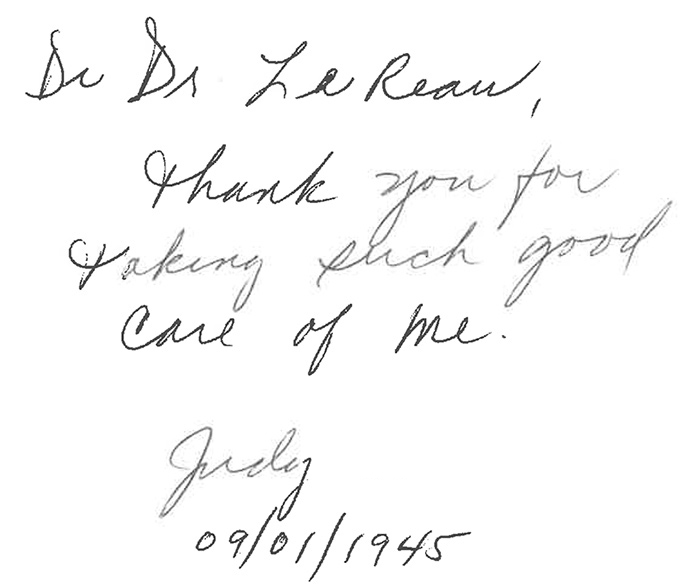 Dr Dr LaReau,
thank you for
taking such good
care of me.
Judy
09/01/1945